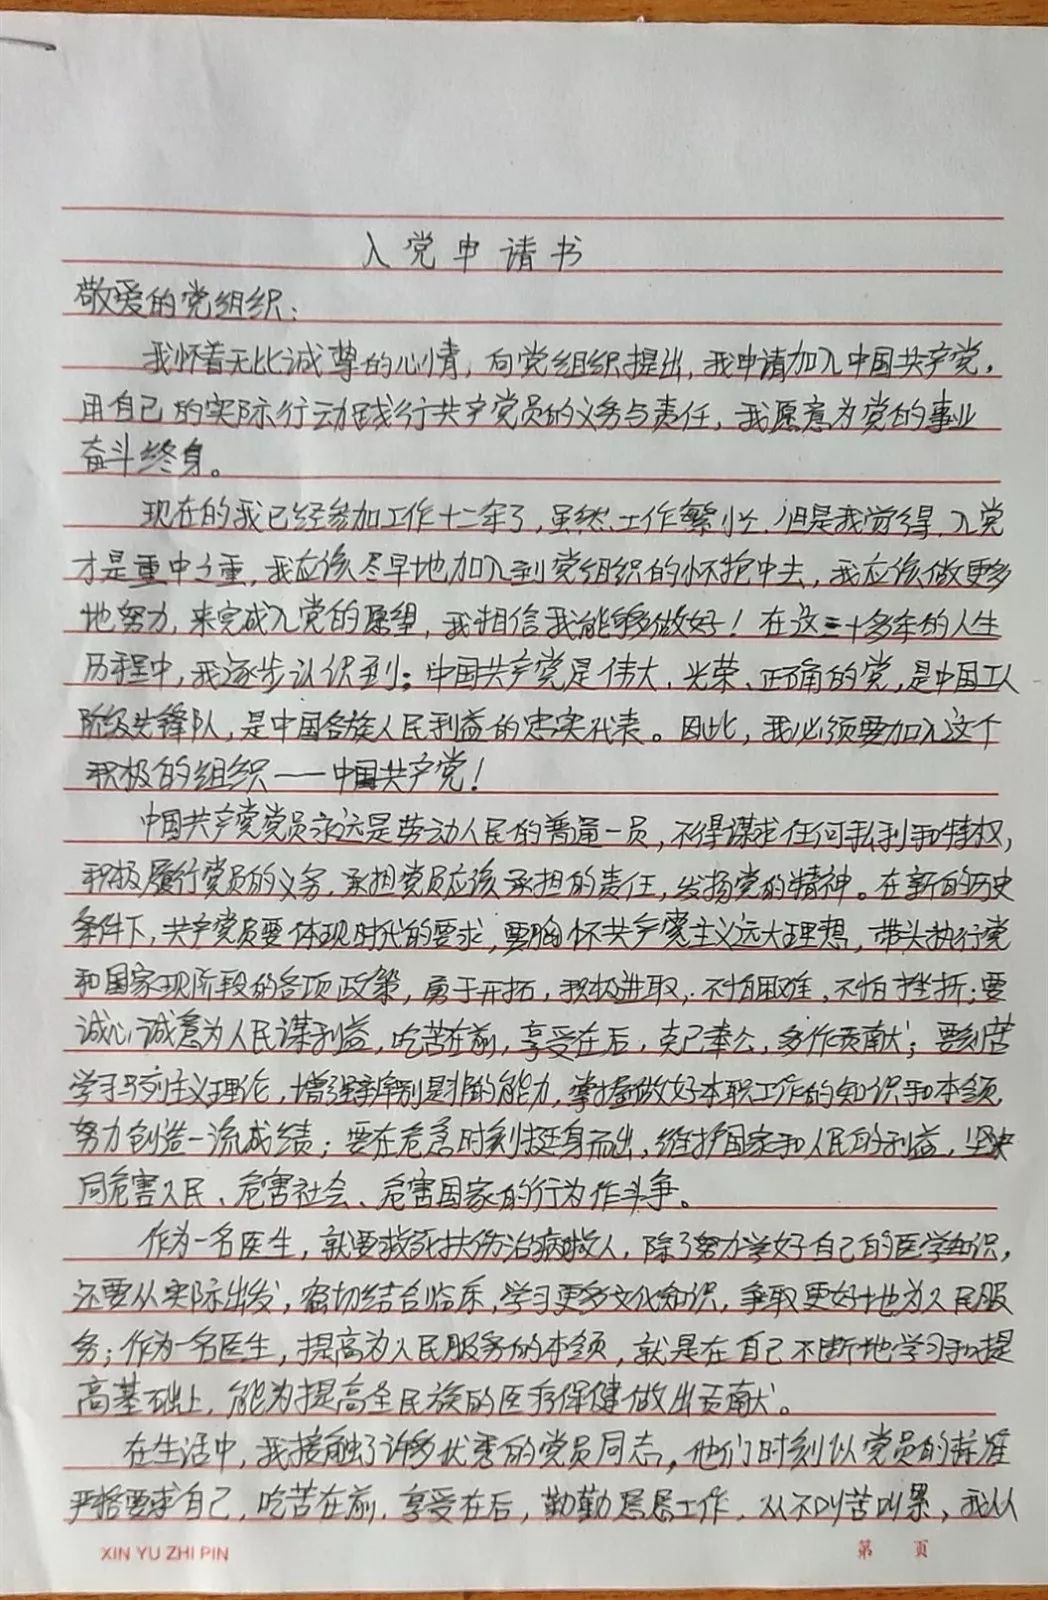 入党申请书
敬爱的党组织：
我怀着无比诚挚的心情，向党组织提出，我申请加入中国共产党，
用自己的实际行动践行共产党员的义务与责任，我愿意为党的事业
奋斗终身。
现在的我已经参加工作十二年了，虽然工作繁忙，但是我觉得，入党
才是重中之重，我应该尽早地加入到党组织的怀抱中去，我应该做更多
地努力，来完成入党的愿望，我相信我能够做好！在这三十多年的人生
历程中，我逐步认识到：中国共产党是伟大、光荣、正确的党，是中国工人
阶级先锋队，是中国各族人民利益的忠实代表。因此，我必须要加入这个
积极的组织——中国共产党！
中国共产党党员永远是劳动人民的普通一员，不得谋求任何私利和特权，
积极履行党员的义务，承担党员应该承担的责任，发扬党的精神。在新的历史
条件下，共产党员要体现时代的要求，要胸怀共产党主义远大理想，带头执行党
和国家现阶段的各项政策，勇于开拓，积极进取，不怕困难，不怕挫折；要
诚心诚意为人民谋利益，吃苦在前，享受在后，克己奉公，多作贡献；要刻苦
学习马列主义理论，增强辨别是非的能力，掌握做好本职工作的知识和本领
努力创造一流成绩；要在危急时刻挺身而出，维护国家和人民的利益，坚决
同危害人民、危害社会、危害国家的行为作斗争。
作为一名医生，就要救死扶伤治病救人，除了努力学好自己的医学知识，
还要从实际出发，密切结合临床，学习更多文化知识，争取更好地为人民服
务；作为一名医生，提高为人民服务的本领，就是在自己不断地学习和提
高基础上，能为提高全民族的医疗保健做出贡献。
在生活中，我接触了许多优秀的党员同志，他们时刻以党员的标准
严格要求自己，吃苦在前，享受在后，勤勤恳恳工作，从不叫苦叫累，我从
XIN YU ZHI PIN
第 页